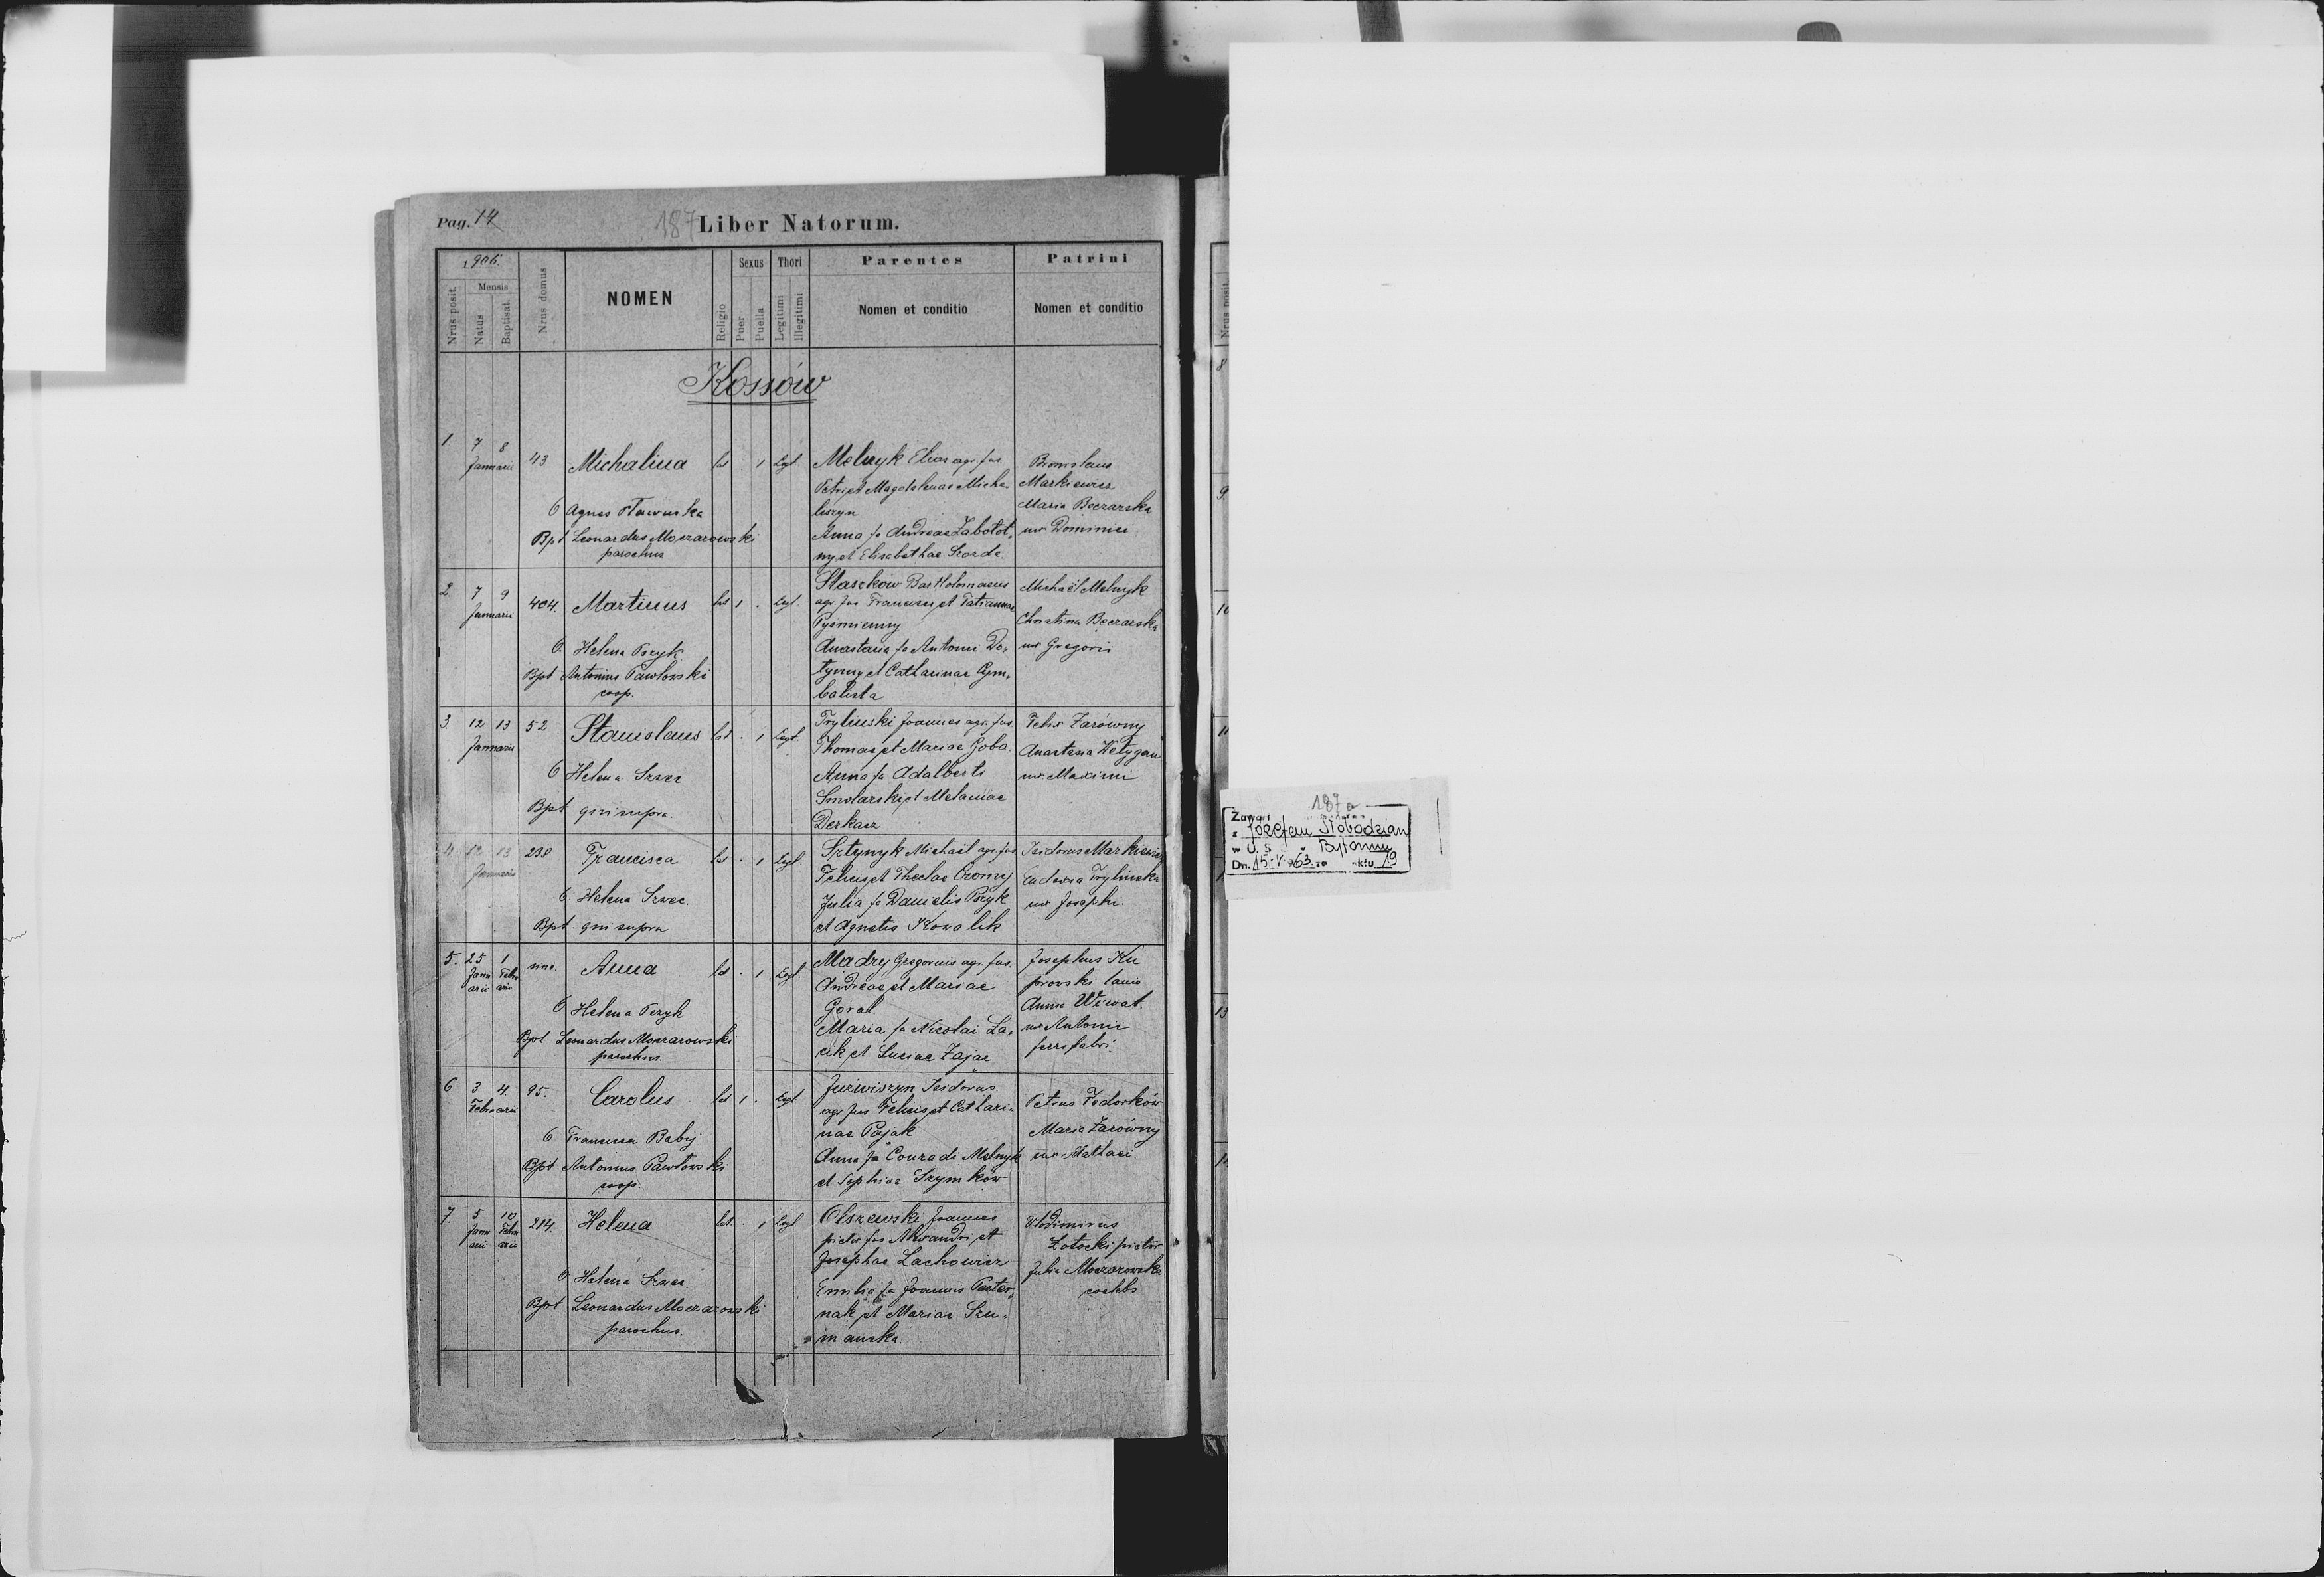 Pag. 14
187
Liber Natorum.
1906.
Mensis
Nrus posit.
Natus
Baptisat.
Nrus domus
NOMEN
Religio
Sexus
Puer
Puella
Thori
Legitimi
Illegitimi
Parentes
Nomen et conditio
Patrini
Nomen et conditio
Kossów
1 7 8 Januarii 43 Michalina lat 1 Legt.
O Agnes
Bpt Leonardus Moczarowski
parochus
Melnyk Elias agr. fus
Petri et Magdalenae Micha
liszyn
Anna fa Andreae Zabołot,
ny et Elisabethae
Bronislaus
Markiewicz
Maria Beczarska
uxr Dominici
2 7 9 Januarii 404. Martinus lat 1 . Legt.
O. Helena Pszyk
Bpt Antonius Pawłowski
coop.
Staszków Bartholomaeus
agr. fus Francisci et Tatiannae
Pyśmienny
Anastasia fa Antonii Do,
tynny et Catharinae Cym,
balista
Michaël Melnyk
Christina Beczarska
uxr Gregorii
3. 12 13 Januarii 52 Stanislaus lat . 1 Legt.
O Helena Szwec
Bpt qui supra.
Tryliński Joannes agr. fus
Thomae et Mariae Goba
Anna fa Adalberti
Smolarski et Melaniae
Derkacz
Felix Zarówny
Anastasia
uxr Maximi
4. 12 13 Januarii 238 Francisca lat . 1 Legt.
O. Helena Szwec.
Bpt. qui supra
Sztynyk Michaël agr. fus
Felicis et Theclae
Julia fa Danielis Pszyk
et Agnetis Kowalik
Isidorus Markiewicz
Eudoxia Trylinska
uxr Josephi.
5. 25 Januarii 1 Februarii Anna lat . 1 Legt.
O Helena Pszyk
Bpt Leonardus Moczarowski
parochus.
Madry Gregorius agr. fus.
Andreae et Mariae
Góral
Maria fa Nicolai Ła,
cik et Luciae Zając
Josephus Ku
prowski lanio
Anna
uxr Antonii
ferri fabri.
6 3 4 Februarii 95. Carolus lat 1 . Legt
O Francisca Babij
Bpt. Antonius Pawłowski
coop.
Juzwiszyn Isidorus
agr fus Felicis et Cathari,
nae Pająk
Anna fa Conradi Melnyk
et Sophiae Szymków
Petrus Fedorków
Maria Zarówny
uxr
7. 5 Januarii 10 Februarii 214. Helena lat . 1 Legt
O Helena Szwec.
Bpt Leonardus Moczarowski
parochus.
Olszewski Joannes
pictor fus Alexandri et
Josephae Lachowicz
Emilia fa Joannis Paster,
nak et Mariae Szu,
manska.
Vlodimirus
Zotocki pictor
Julia Moczarowska
coelebs
Nrus posit.
8
9.
10
11
13
14
187a
Zawarł
z Józefem Słobodzian
w U.S. w Bytomiu
Dn. 15.V.1963 nr aktu 19